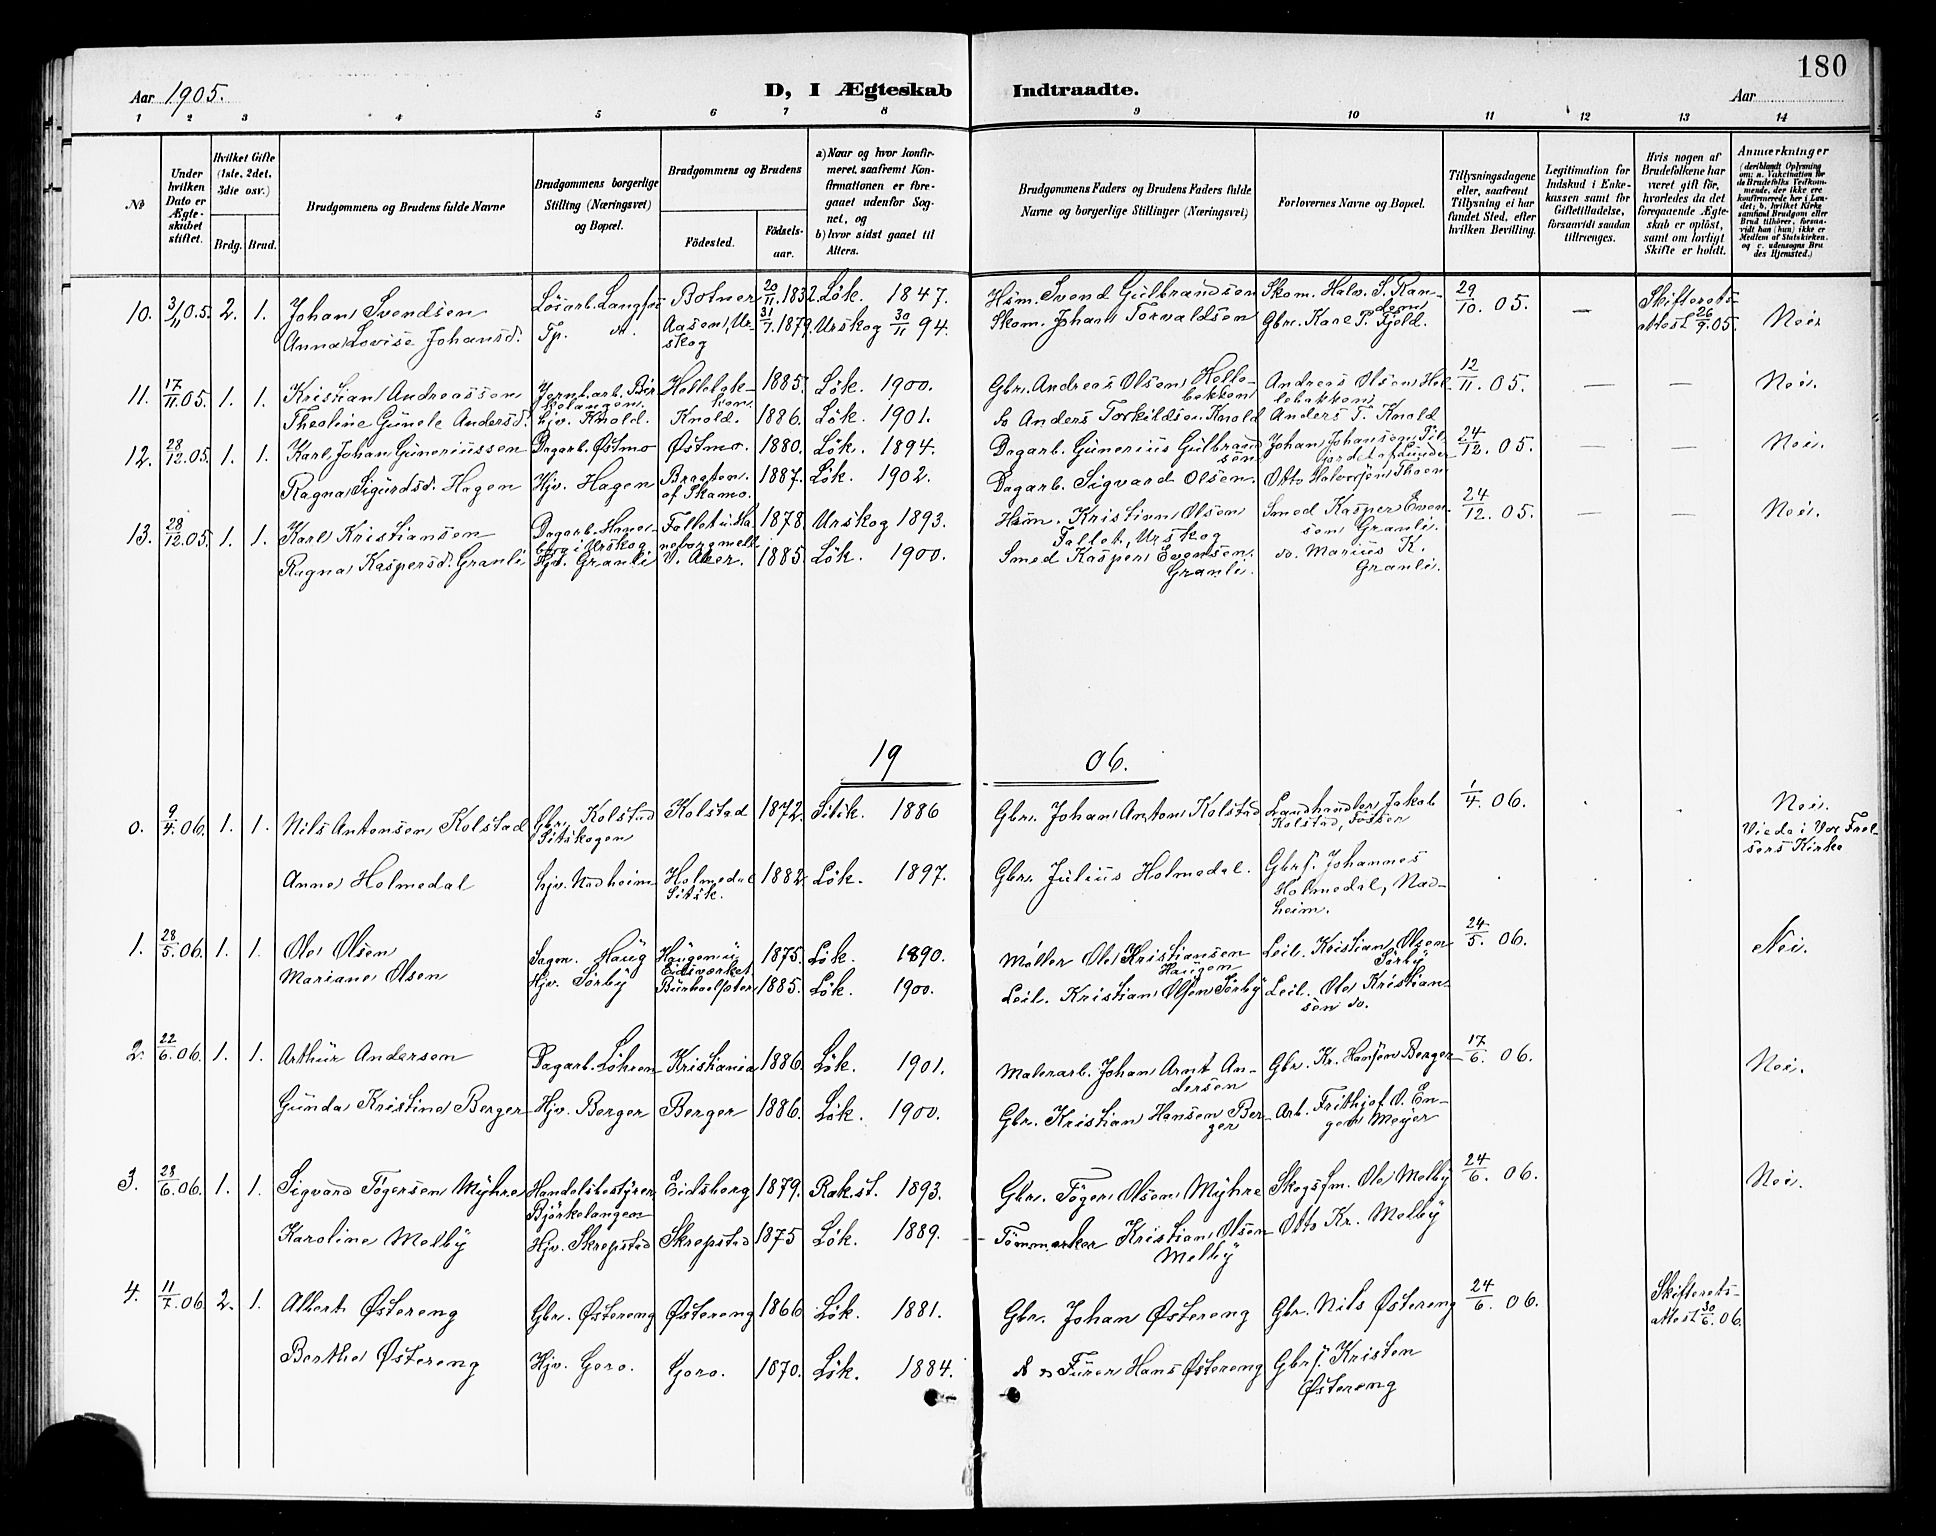 180
Aar 1905.
D, I Ægteskab Indtraadte.
Aar
1 2 3 4 5 6 7 8 9 10 11 12 13 14
No
Under hvilken Dato er Ægteskabet stiftet.
Hvilket Gifte (1ste, 2det, 3die osv.)
Brdg. Brud.
Brudgommens og Brudens fulde Navne
Brudgommens borgerlige Stilling (Næringsvei) og Bopæl.
Brudgommens og Brudens
Fødested.
Fødselsaar.
a) Naar og hvor konfirmeret, saafremt Konfirmationen er foregaaet udenfor Sognet, og
b) hvor sidst gaaet til Alters.
Brudgommens Faders og Brudens Faders fulde Navne og borgerlige Stillinger (Næringsvei)
Forlovernes Navne og Bopæl.
Tillysningsdagene eller, saafremt Tillysning ei har fundet Sted, efter hvilken Bevilling.
Legitimation for Indskud i Enkekassen samt for Giftetilladelse, forsaavidt saadan tiltrænges.
Hvis nogen af Brudefolkene har været gift før, hvorledes da det foregaaende Ægteskab er opløst, samt om lovligt Skifte er holdt.
Anmærkninger (deriblandt Oplysning om: a. Vakcination for de Brudefolks Vedkommende, der ikke ere konfirmerede her i Landet; b. hvilket Kirkesamfund Brudgom eller Brud tilhører, forsaavidt han (hun) ikke er Medlem af Statskirken, og c. udensogns Brudes Hjemsted.)
10. 3/11 05. 2. 1. Johan Svendsen Løsarb. Langfos Botner 20/11. 1832. Løk. 1847. Hsm. Svend Gulbrandsen Skom. Halv. S. Randem 29/10. 05. — Skifteretsattest 26/9. 05. Nei
Anna Lovise Johansd. Tp. Aasen, Urskog 31/7. 1879. Urskog 30/11 94. Skom. Johan Torvaldsen Gbr. Karl P. Fjeld.
11. 17/11. 05. 1. 1. Kristian Andreassen Jernb.arb. Bjørkelangen 1885. Løk. 1900. Gbr. Andreas Olsen Hellebekken Andreas Olsen Hellebekken 12/11. 05. — — Nei.
Theoline Gunele Andersd. Hjv. Knold. Knold. 1886. Løk. 1901. do Anders Torkildsen Knold Anders T. Knold
12. 28/12. 05. 1. 1. Karl Johan Guneriussen Dagarb. Østmo Østmo. 1880. Løk. 1894. Dagarb. Gunerius Gulbrandsen Johan Johansen 24/12. 05. — — Nei.
Ragna Sigurdsd. Hagen Hjv. Hagen Braaten af Skamo. 1887. Løk. 1902. Dagarb. Sigvard Olsen. Otto Halvorsen Thoen
13. 28/12. 05. 1. 1. Karl Kristiansen Dagarb. Haneborg i Urskog Fallet u. Haneborg mell. 1878. Urskog 1893. Hsm. Kristian Olsen Fallet, Urskog Smed Kasper Evensen Granli. 24/12. 05. — — Nei.
Ragna Kaspersd. Granli Hjv. Granli V. Aker. 1885. Løk. 1900. Smed Kasper Evensen Granli. do. Marius K. Granli.
19 06.
0. 9/4. 06. 1. 1. Nils Antonsen Kolstad Gbr. Kolstad Sitskogen Kolstad 1872. Sitsk. 1886 Gbr. Johan Anton Kolstad Landhandler Jakob Kolstad, Fosser 1/4. 06. Nei. Viede i Vor Frelsers Kirke
Anne Holmedal hjv. Nadheim Holmedal Sitsk. 1882. Løk. 1897. Gbr. Julius Holmedal. Gbrs. Johannes Holmedal, Nadheim.
1. 28/5. 06. 1. 1. Ole Olsen Sagm. Haug Haugen u. Eidsverket 1875. Løk. 1890. Møller Ole Kristiansen Haugen Leil. Kristian Olsen Sørby 24/5. 06. Nei.
Mariane Olsen Hjv. Sørby 1885. Løk. 1900. Leil. Kristian Olsen Sørby Leil. Ole Kristiansen do.
2. 22/6. 06. 1. 1. Arthur Andersen Dagarb. Løhren Kristiania 1886. Løk. 1901. Malerarb. Johan Arnt Andersen Gbr. Kr. Hansen Berger 17/6. 06. Nei.
Gunda Kristine Berger Hjv. Berger Berger 1886. Løk. 1900. Gbr. Kristian Hansen Berger Arb. Frithjof O. Engen Meyer
3. 28/6. 06. 1. 1. Sigvard Tøgersen Myhre Handelsbestyrer Bjørkelangen Eidsberg 1879. Rak.st. 1893. Gbr. Tøger Olsen Myhre Skogsfm. Ole Melby 24/6. 06. Nei.
Karoline Melby Hjv. Skrepstad Skrepstad 1875 Løk. 1889. Tømmerker Kristian Olsen Melby Otto Kr. Melby
4. 11/7. 06. 2. 1. Albert Østereng Gbr. Østereng Østereng 1866 Løk. 1881. Gbr. Johan Østereng Gbr. Nils Østereng 24/6. 06. Skifteretsattest 30/6. 06.
Berthe Østereng Hjv. Goro. Goro. 1870. Løk. 1884. Furer Hans Østereng Gbrs. Kristen Østereng